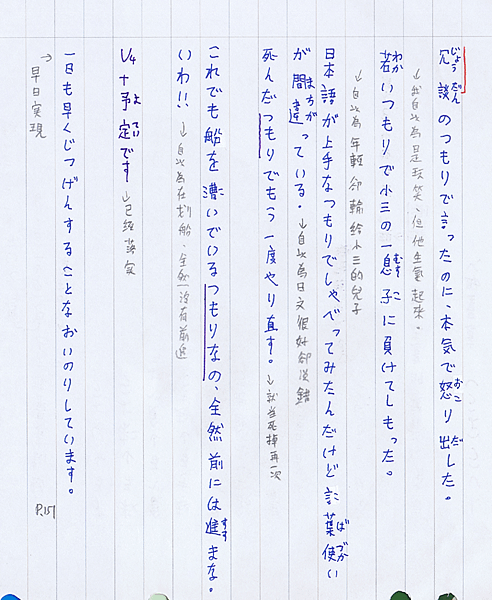 冗談のつもりで言ったのに、本気で怒り出した。
じょうだん おこ だ
↓我自以為是玩笑、但他生氣起來。
若いつもりで小三の息子に負けてしもった。
わか むすこ
↓自以為年輕卻輸給小三的兒子
日本語が上手なつもりでしゃべってみたんだけど言葉使い
ばづかい
が間違っている。↓自以為日文很好卻說錯
まちが
死んだつもりでもう一度やり直す。↓就當死掉再一次
これでも船を漕いでいるつもりなの、全然前には進まな。
すす
いわ!!↓自以為在划船、全然沒有前進
V4+予定です↓已經決定
よてい
一日も早くじつげんすることなおいのりしています。
→早日實現
P.151